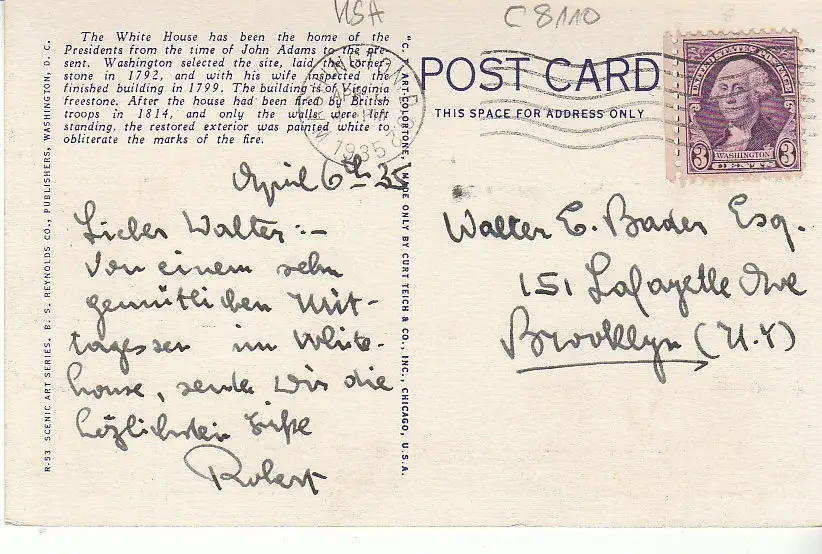 USA
C8110
The White House has been the home of the
Presidents from the time of John Adams to the pre-
sent. Washington selected the site, laid the corner
stone in 1792, and with his wife inspected the
finished building in 1799. The building is of Virginia
freestone. After the house had been fired by British
troops in 1814, and only the walls were left
standing, the restored exterior was painted white to
obliterate the marks of the fire.
April 6th 35
Lieber Walter:-
Von einem sehr
gemütlichen Mit-
tagessen im White-
house, sende Dir die
herzlichsten Grüße
Robert
R-53 SCENIC ART SERIES. B. S. REYNOLDS CO., PUBLISHERS, WASHINGTON, D. C.
"C. T. ART-COLORTONE," MADE ONLY BY CURT TEICH & CO., INC., CHICAGO, U.S.A.
WASHINGTON
1935
POST CARD
THIS SPACE FOR ADDRESS ONLY
UNITED STATES POSTAGE
3 WASHINGTON 3
CENTS
Walter E. Bader Esq.
151 Lafayette Ave
Brooklyn (N.Y)